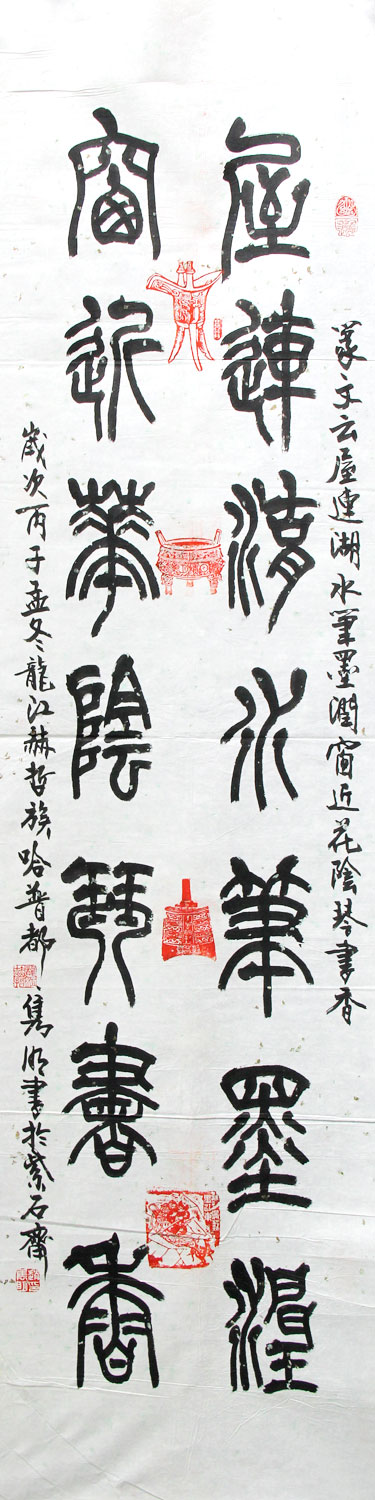 篆文云屋連湖水筆墨潤窗近花陰琴書香
屋連湖水筆墨潤
窗近華陰琴書香
歲次丙子孟冬龍江赫哲族哈普都
雋明書於紫石齋